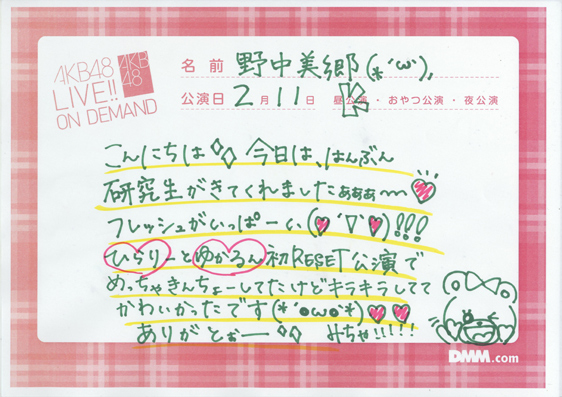 AKB48
LIVE!!
ON DEMAND
AKB
48
名前 野中美郷(*´ω`),
公演日 2月11日 昼公演・おやつ公演・夜公演
こんにちは 今日は、はんぶん
研究生がきてくれましたぁぁぁ〜♥
フレッシュがいっぱーい(♥´∇`♥)!!!
ひらりーとゆかるん初RESET公演で
めっちゃきんちょーしてたけどキラキラしてて
かわいかったです(*´oωo`*)♥♥
ありがとぉー みちゃ!!!!!
DMM.com